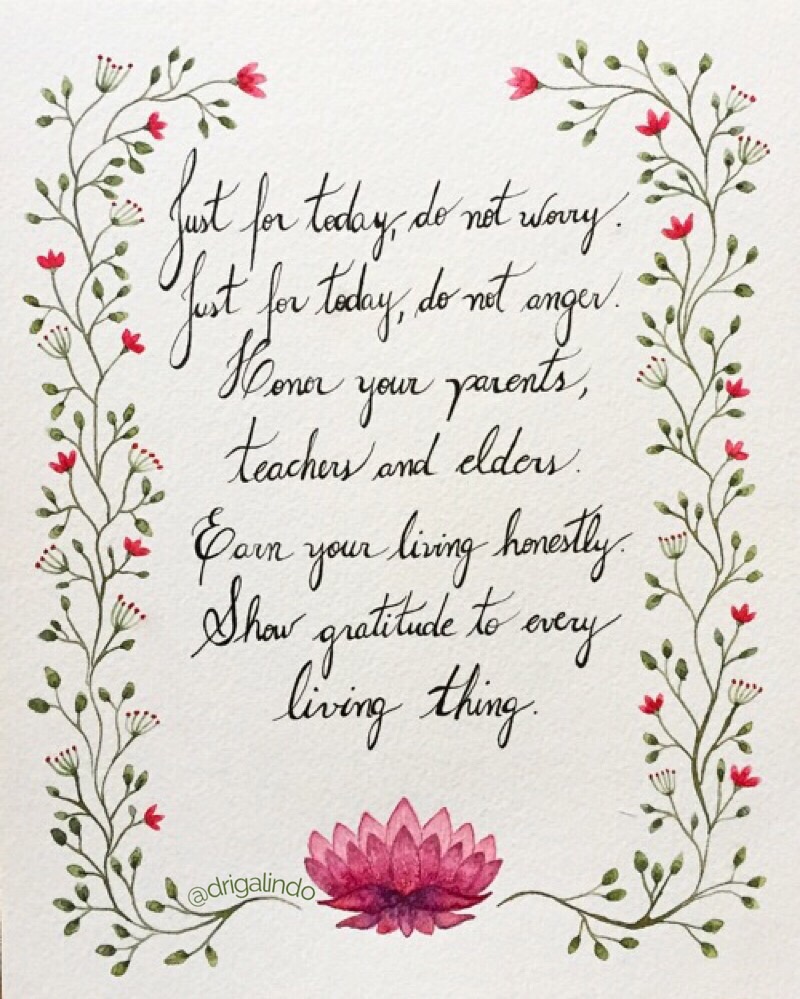 Just for today, do not worry.
Just for today, do not anger.
Honor your parents,
teachers and elders.
Earn your living honestly.
Show gratitude to every
living thing.
@drigalindo